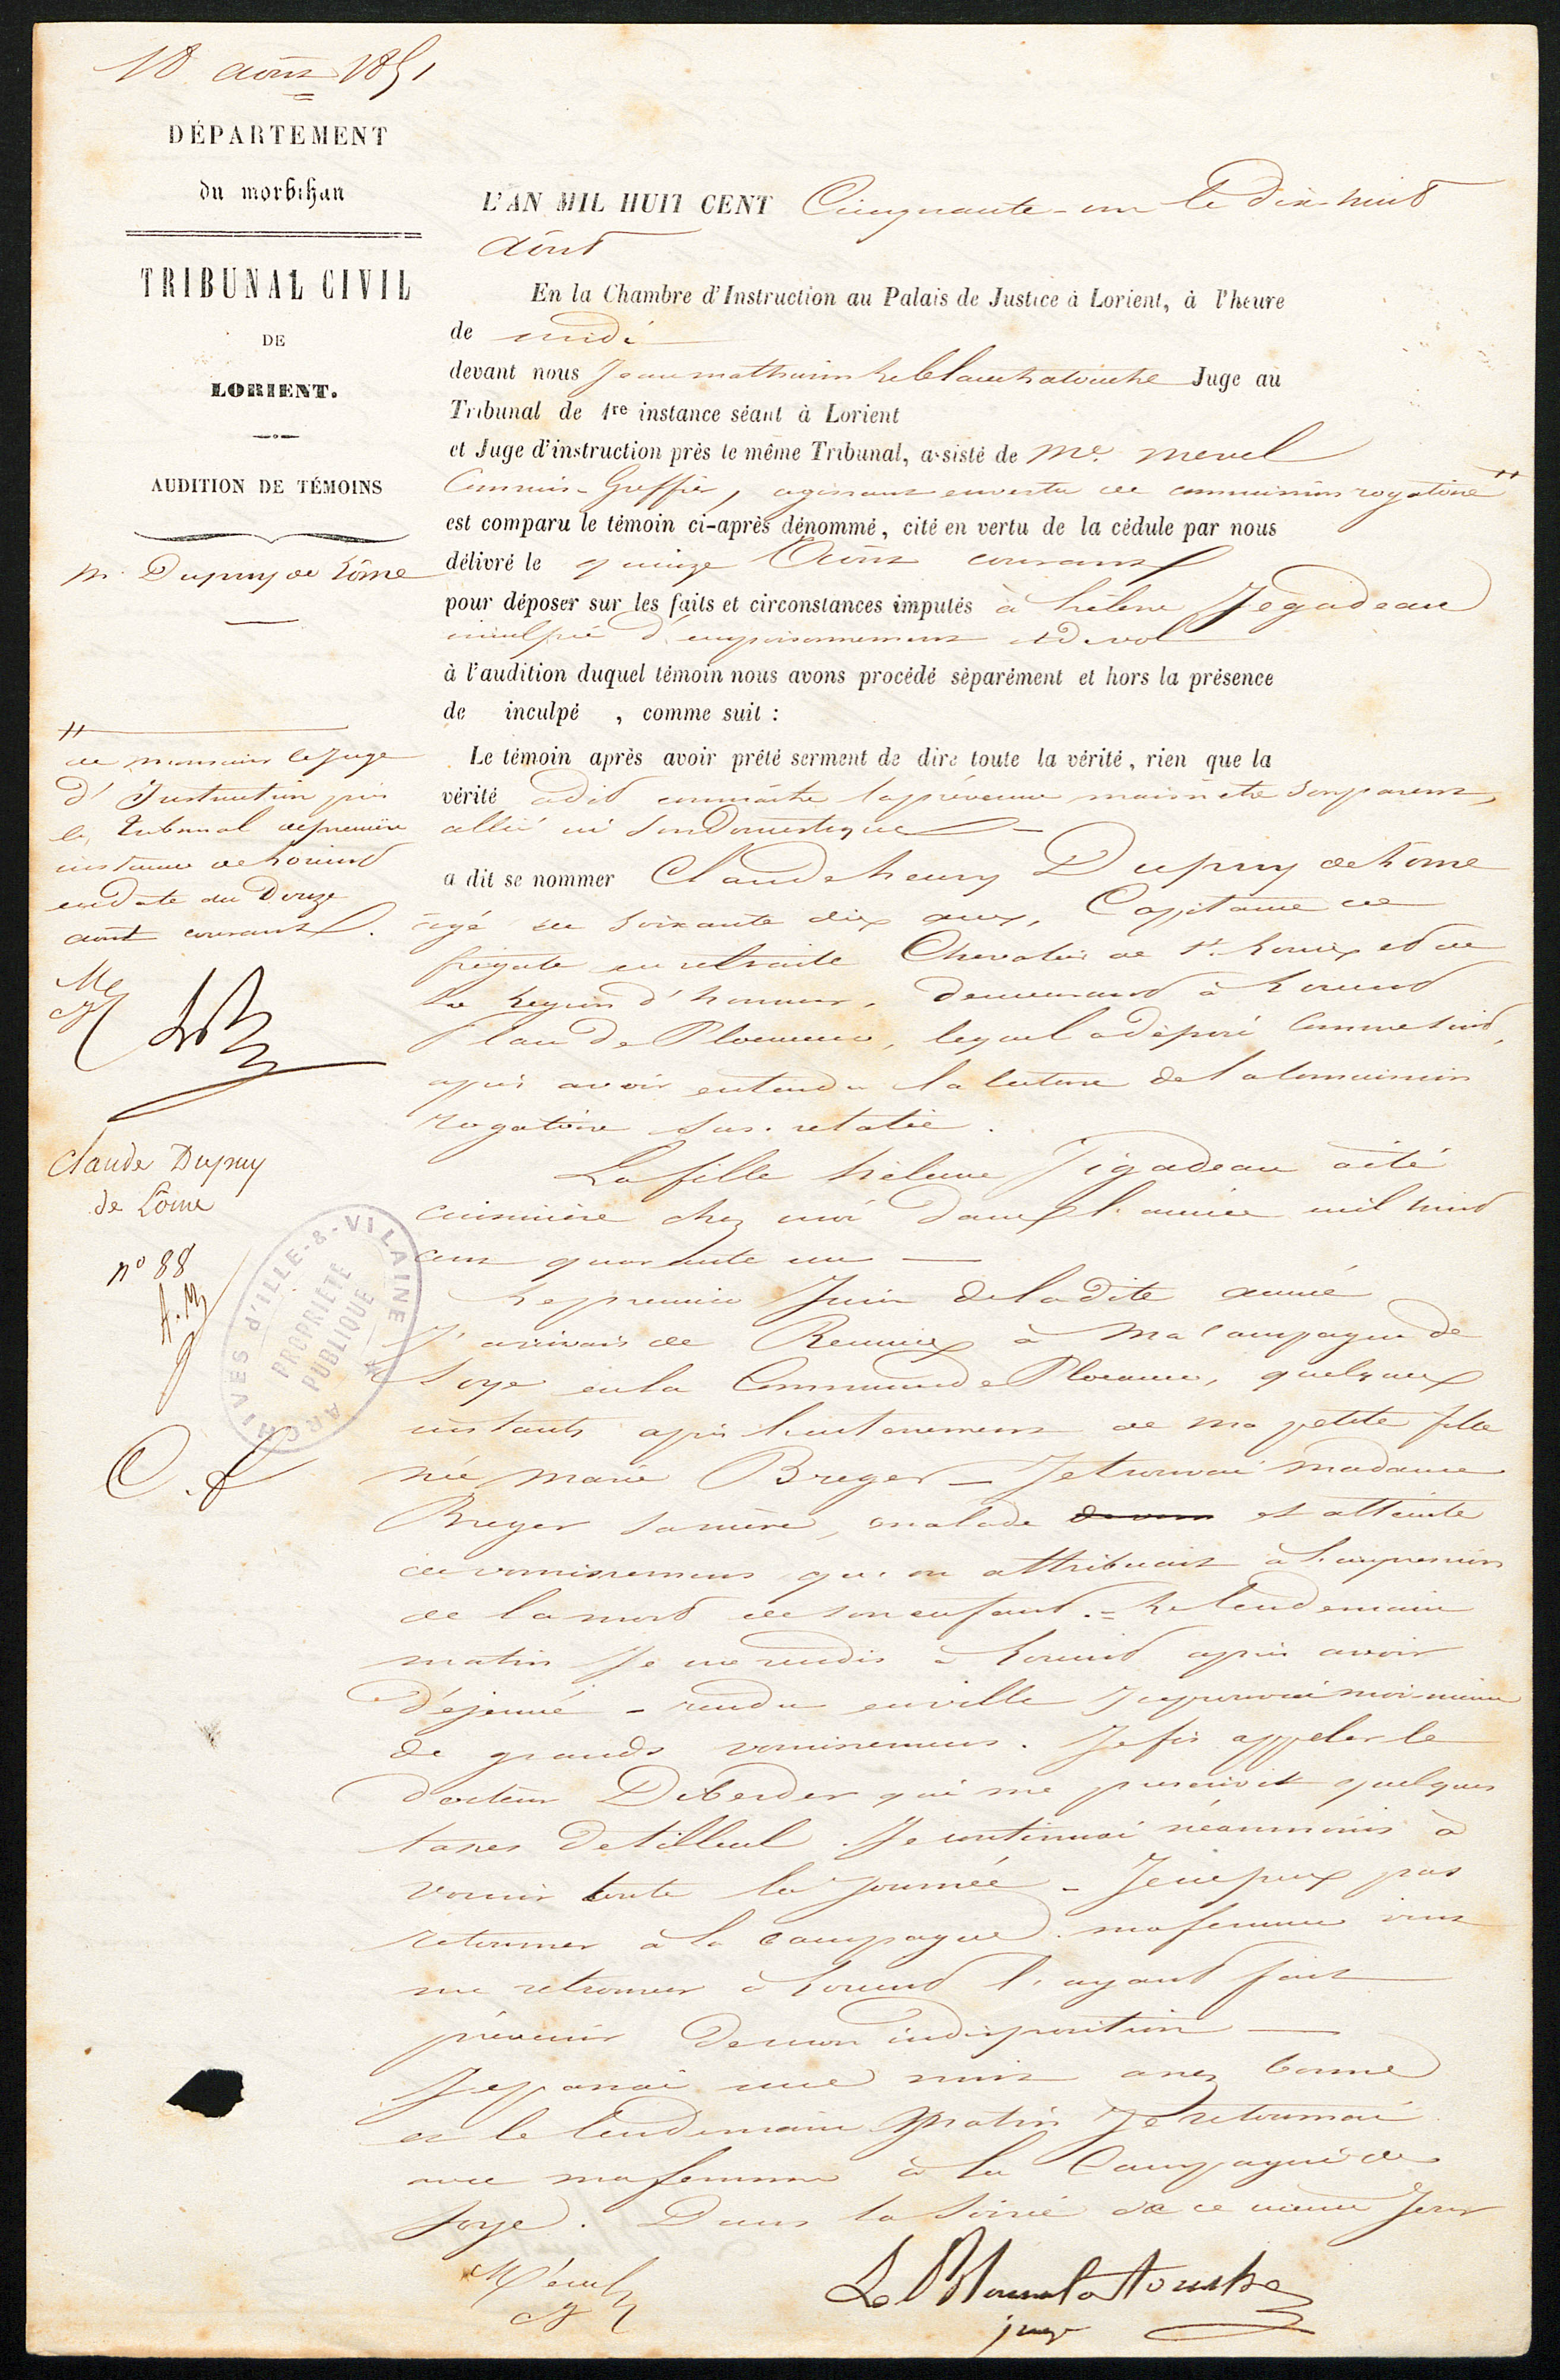 18 août 1851
DÉPARTEMENT
du morbihan
TRIBUNAL CIVIL
DE
LORIENT.
AUDITION DE TÉMOINS
M. Dupuy de Lôme
L'AN MIL HUIT CENT Cinquante-un le dix-huit
août
En la Chambre d'Instruction au Palais de Justice à Lorient, à l'heure
de midi
devant nous Jean mathurin Le Blanchatouche Juge au
Tribunal de 1re instance séant à Lorient
et Juge d'instruction près le même Tribunal, assisté de Me. Mevel
Commis-Greffier, agissant en vertu de commission rogatoire #
est comparu le témoin ci-après dénommé, cité en vertu de la cédule par nous
délivré le quinze Août courant
pour déposer sur les faits et circonstances imputés à hélène Jegadeau
inculpée d'empoisonnement et de vol
à l'audition duquel témoin nous avons procédé séparément et hors la présence
de inculpé , comme suit :
Le témoin après avoir prêté serment de dire toute la vérité, rien que la
vérité a dit connaître la prévenue mais n'être son parent,
allié ni son Domestique
a dit se nommer Claude henry Dupuy de Lome
âgé de soixante dix ans, Capitaine de
frégate en retraite Chevalier de St. Louis et de
la Légion d'honneur, demeurant à Lorient
Place de Ploemeur, lequel a déposé comme suit,
après avoir entendu la lecture de la commission
rogatoire sus-relatée.
#
de monsieur le juge
d'Instruction près
le tribunal de première
instance de Lorient
en date du Douze
août courant.
Claude Dupuy
de Lôme
no 88
C. f
ARCHIVES d'ILLE-&-VILAINE
PROPRIÉTÉ
PUBLIQUE
La fille hélène Jégadeau a été
cuisinière chez moi dans l'année mil huit
cent quarante un
Le premier Juin de la dite année
J'arrivais de Rennes à ma campagne de
Soye en la Commune de Ploemeur, quelques
instants après l'enterrement de ma petite fille
née Marie Breger - Je trouvai madame
Breger sa mère, malade et atteinte
de vomissemens qu'on attribuait à l'impression
de la mort de son enfant. = Le lendemain
matin Je me rendis à Lorient après avoir
déjeuné - rendu en ville J'éprouvai moi-même
de grands vomissemens. Je fis appeler le
docteur Diberder qui me prescrivit quelques
tasses de tilleul. Je continuai néanmoins à
vomir toute la Journée - Je ne pus pas
retourner à la campagne. ma femme vint
me retrouver à Lorient l'ayant fait
prévenir de mon indisposition
Je passai une nuit assez bonne
et le lendemain Matin Je retournai
avec ma femme à la Campagne de
Soye. Dans la soirée de ce même Jour
Mevel
Le Blanchatouche
juge